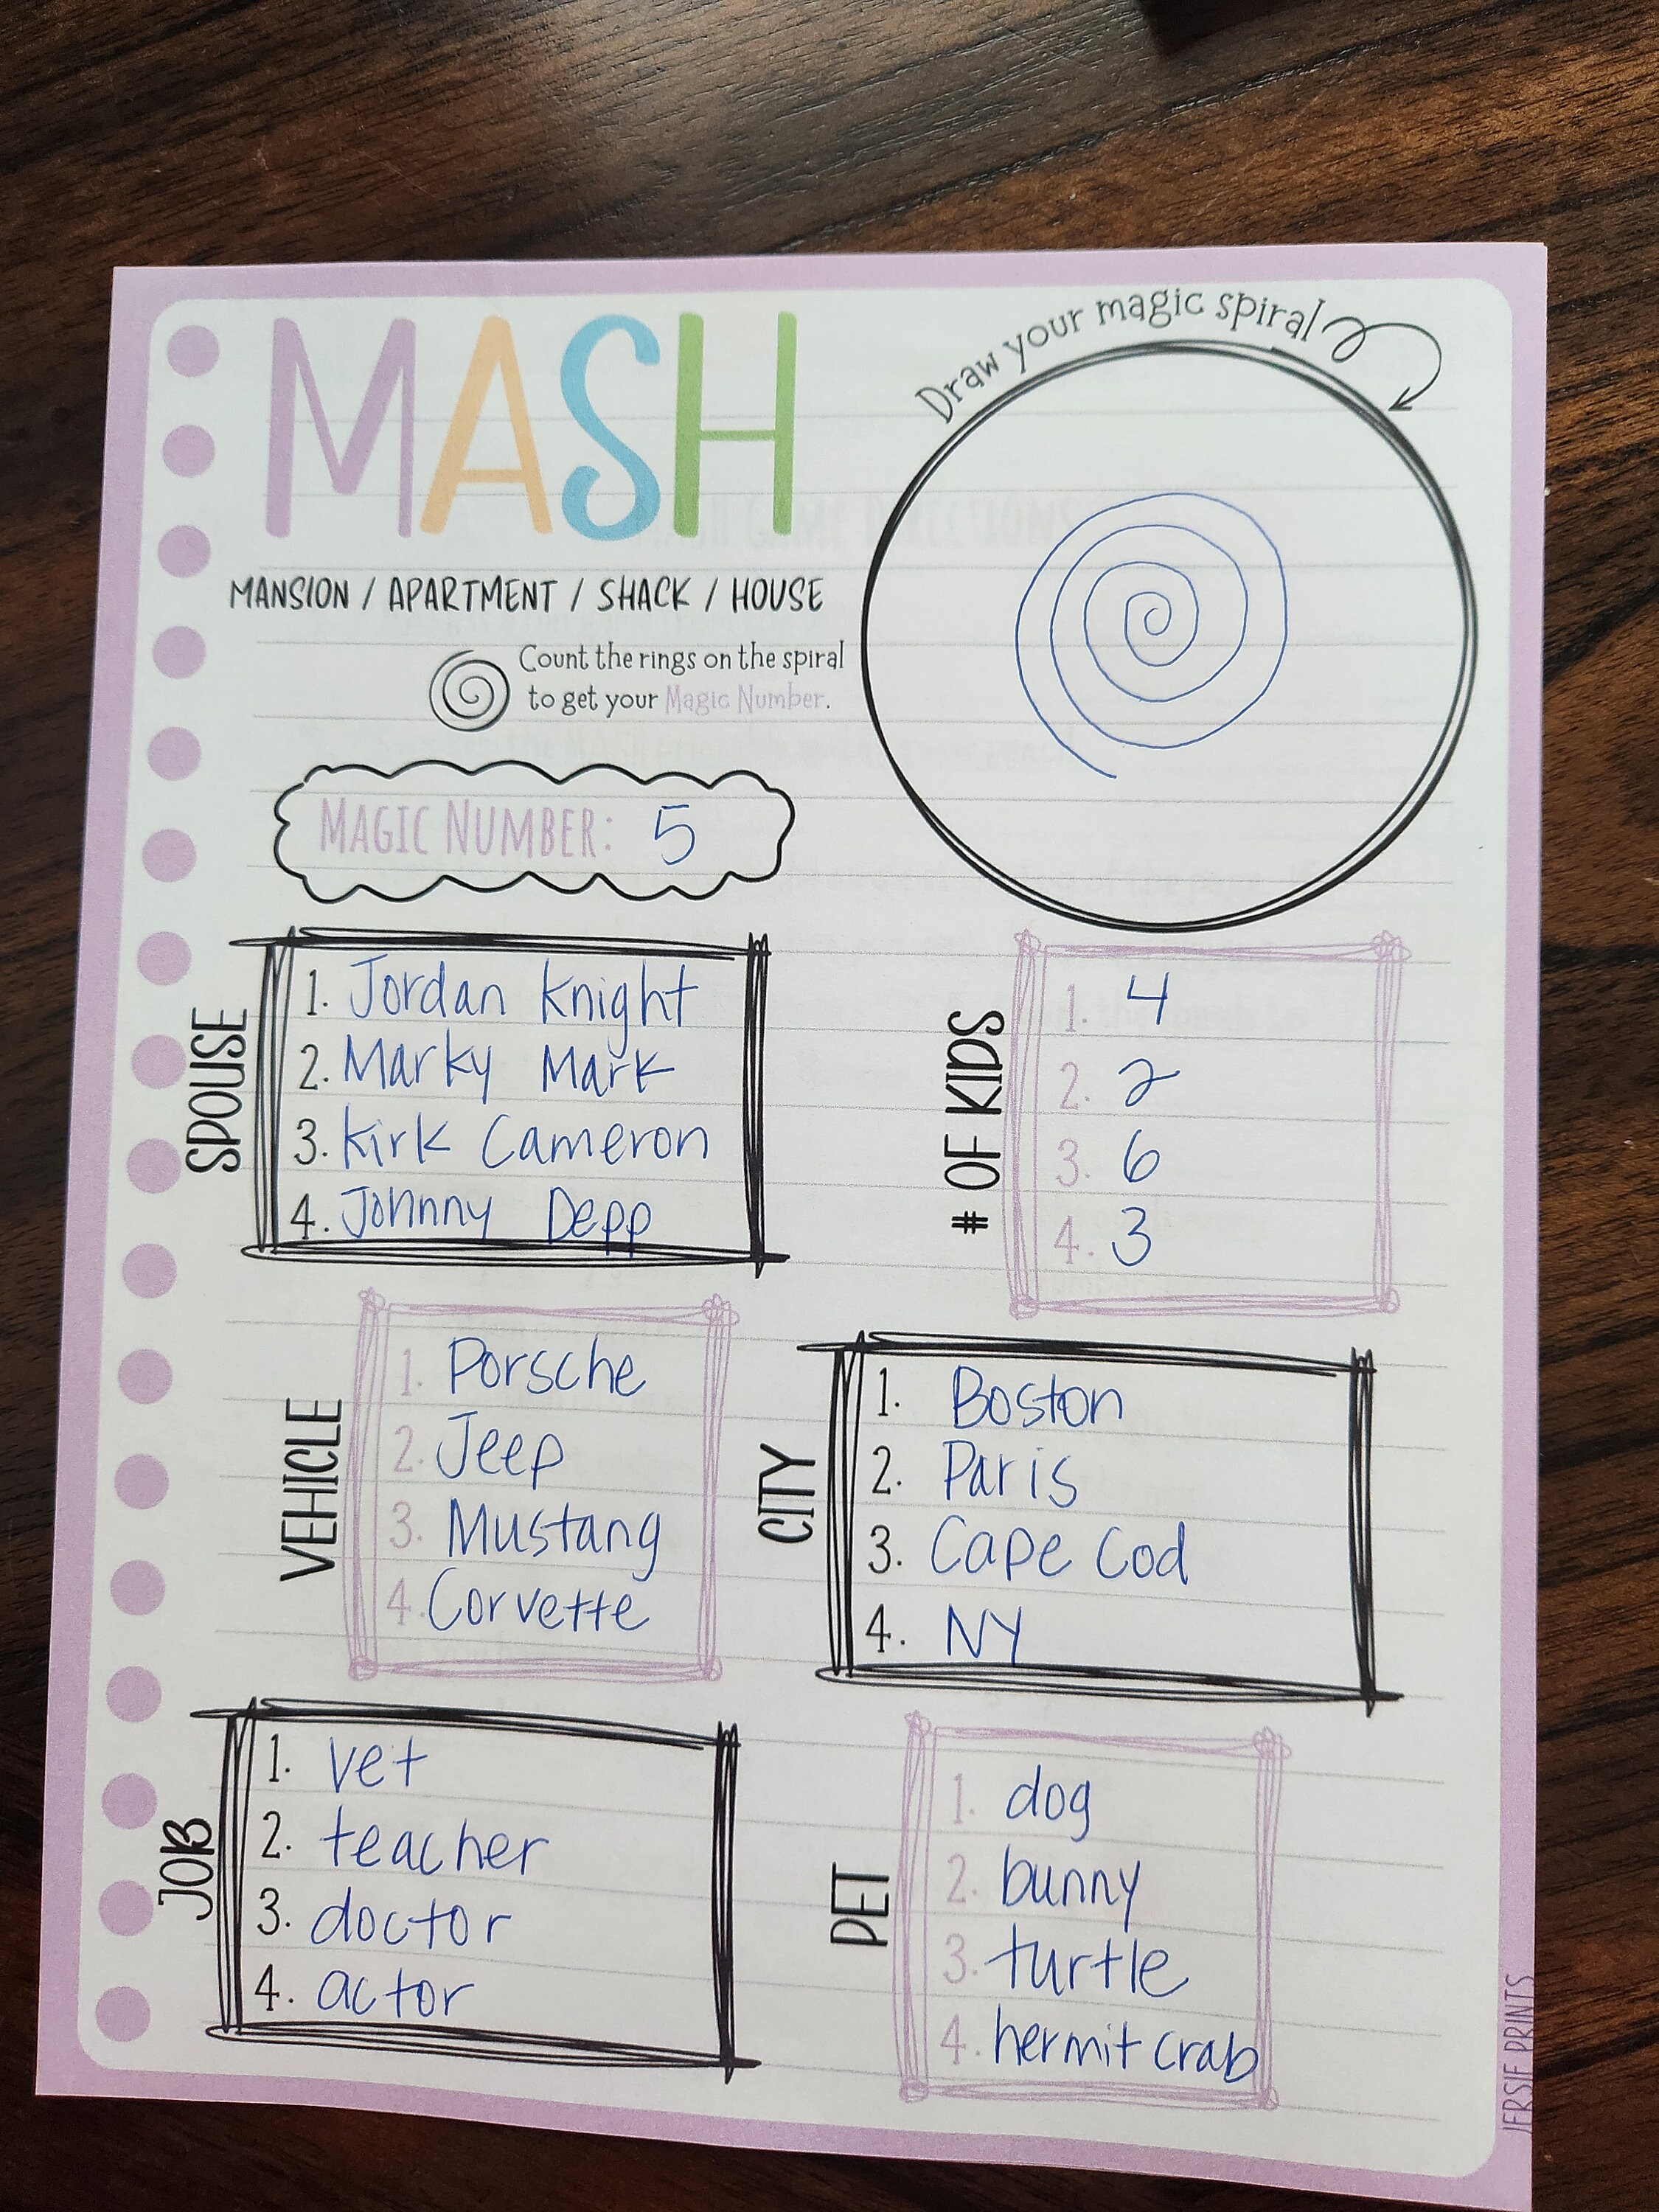 MASH
Draw your magic spiral
MANSION / APARTMENT / SHACK / HOUSE
Count the rings on the spiral
to get your Magic Number.
MAGIC NUMBER: 5
SPOUSE
1. Jordan Knight
2. Marky Mark
3. Kirk Cameron
4. Johnny Depp
# OF KIDS
1. 4
2. 2
3. 6
4. 3
VEHICLE
1. Porsche
2. Jeep
3. Mustang
4. Corvette
CITY
1. Boston
2. Paris
3. Cape Cod
4. NY
JOB
1. vet
2. teacher
3. doctor
4. actor
PET
1. dog
2. bunny
3. turtle
4. hermit crab
PRINTS